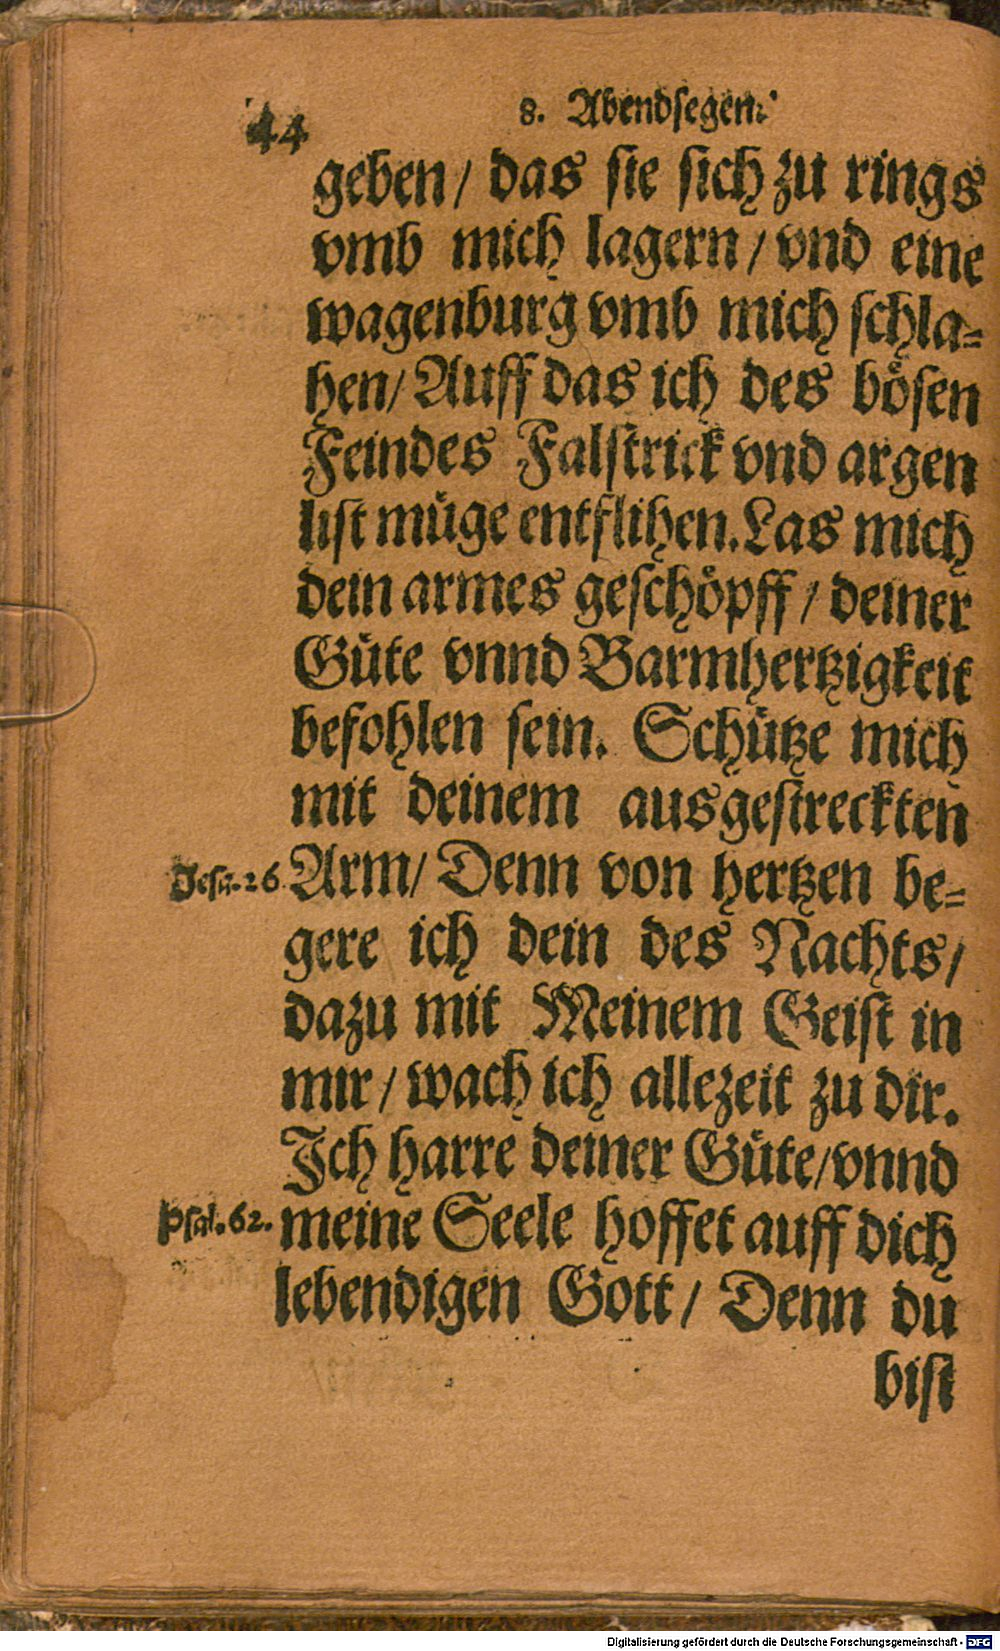 44
8. Abendsegen.
geben / das sie sich zu rings
vmb mich lagern / vnd eine
wagenburg vmb mich schla-
hen / Auff das ich des bösen
Feindes Falstrick vnd argen
list müge entflihen. Las mich
dein armes geschöpff / deiner
Güte vnnd Barmhertzigkeit
befohlen sein. Schütze mich
mit deinem ausgestreckten
Jesa. 26. Arm / Denn von hertzen be-
gere ich dein des Nachts /
dazu mit Meinem Geist in
mir / wach ich allezeit zu dir.
Ich harre deiner Güte / vnnd
Psal. 62. meine Seele hoffet auff dich
lebendigen Gott / Denn du
bist
Digitalisierung gefördert durch die Deutsche Forschungsgemeinschaft - DFG